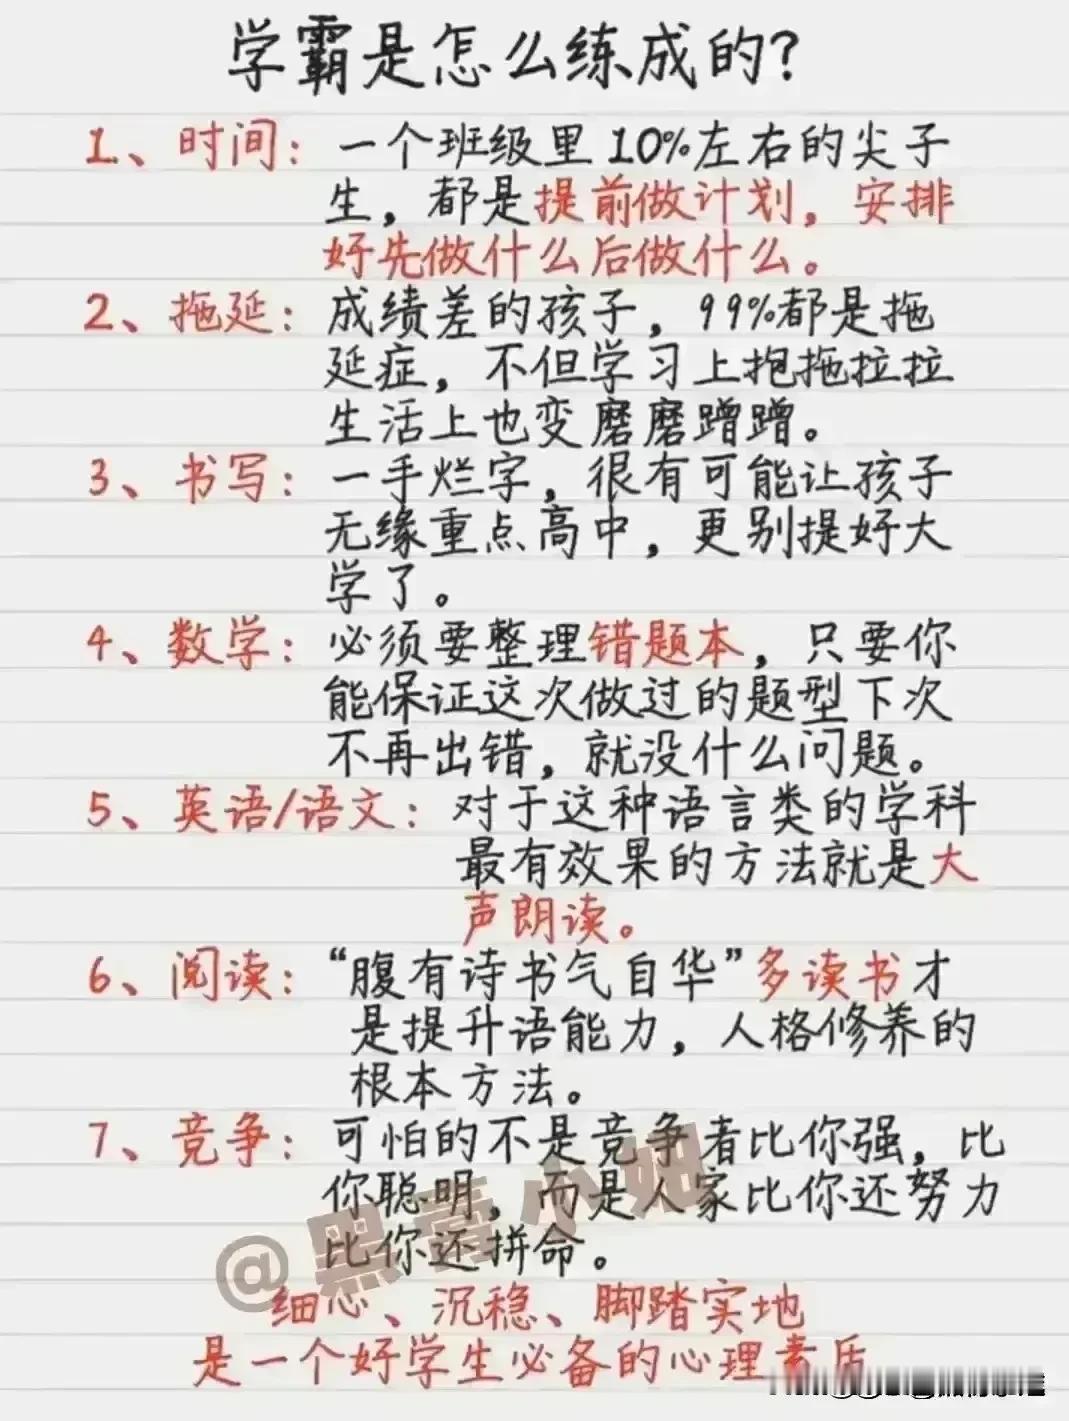 学霸是怎么练成的?
1、时间：一个班级里10%左右的尖子
生，都是提前做计划，安排
好先做什么后做什么。
2、拖延：成绩差的孩子，99%都是拖
延症，不但学习上拖拖拉拉
生活上也变磨磨蹭蹭。
3、书写：一手烂字，很有可能让孩子
无缘重点高中，更别提好大
学了。
4、数学：必须要整理错题本，只要你
能保证这次做过的题型下次
不再出错，就没什么问题。
5、英语/语文：对于这种语言类的学科
最有效果的方法就是大
声朗读。
6、阅读：“腹有诗书气自华”多读书才
是提升语能力，人格修养的
根本方法。
7、竞争：可怕的不是竞争者比你强，比
你聪明，而是人家比你还努力
比你还拼命。
@黑 小妞
细心、沉稳、脚踏实地
是一个好学生必备的心理素质